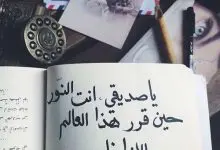 ياصديقي: انت النور
حين قرر هذا العالم